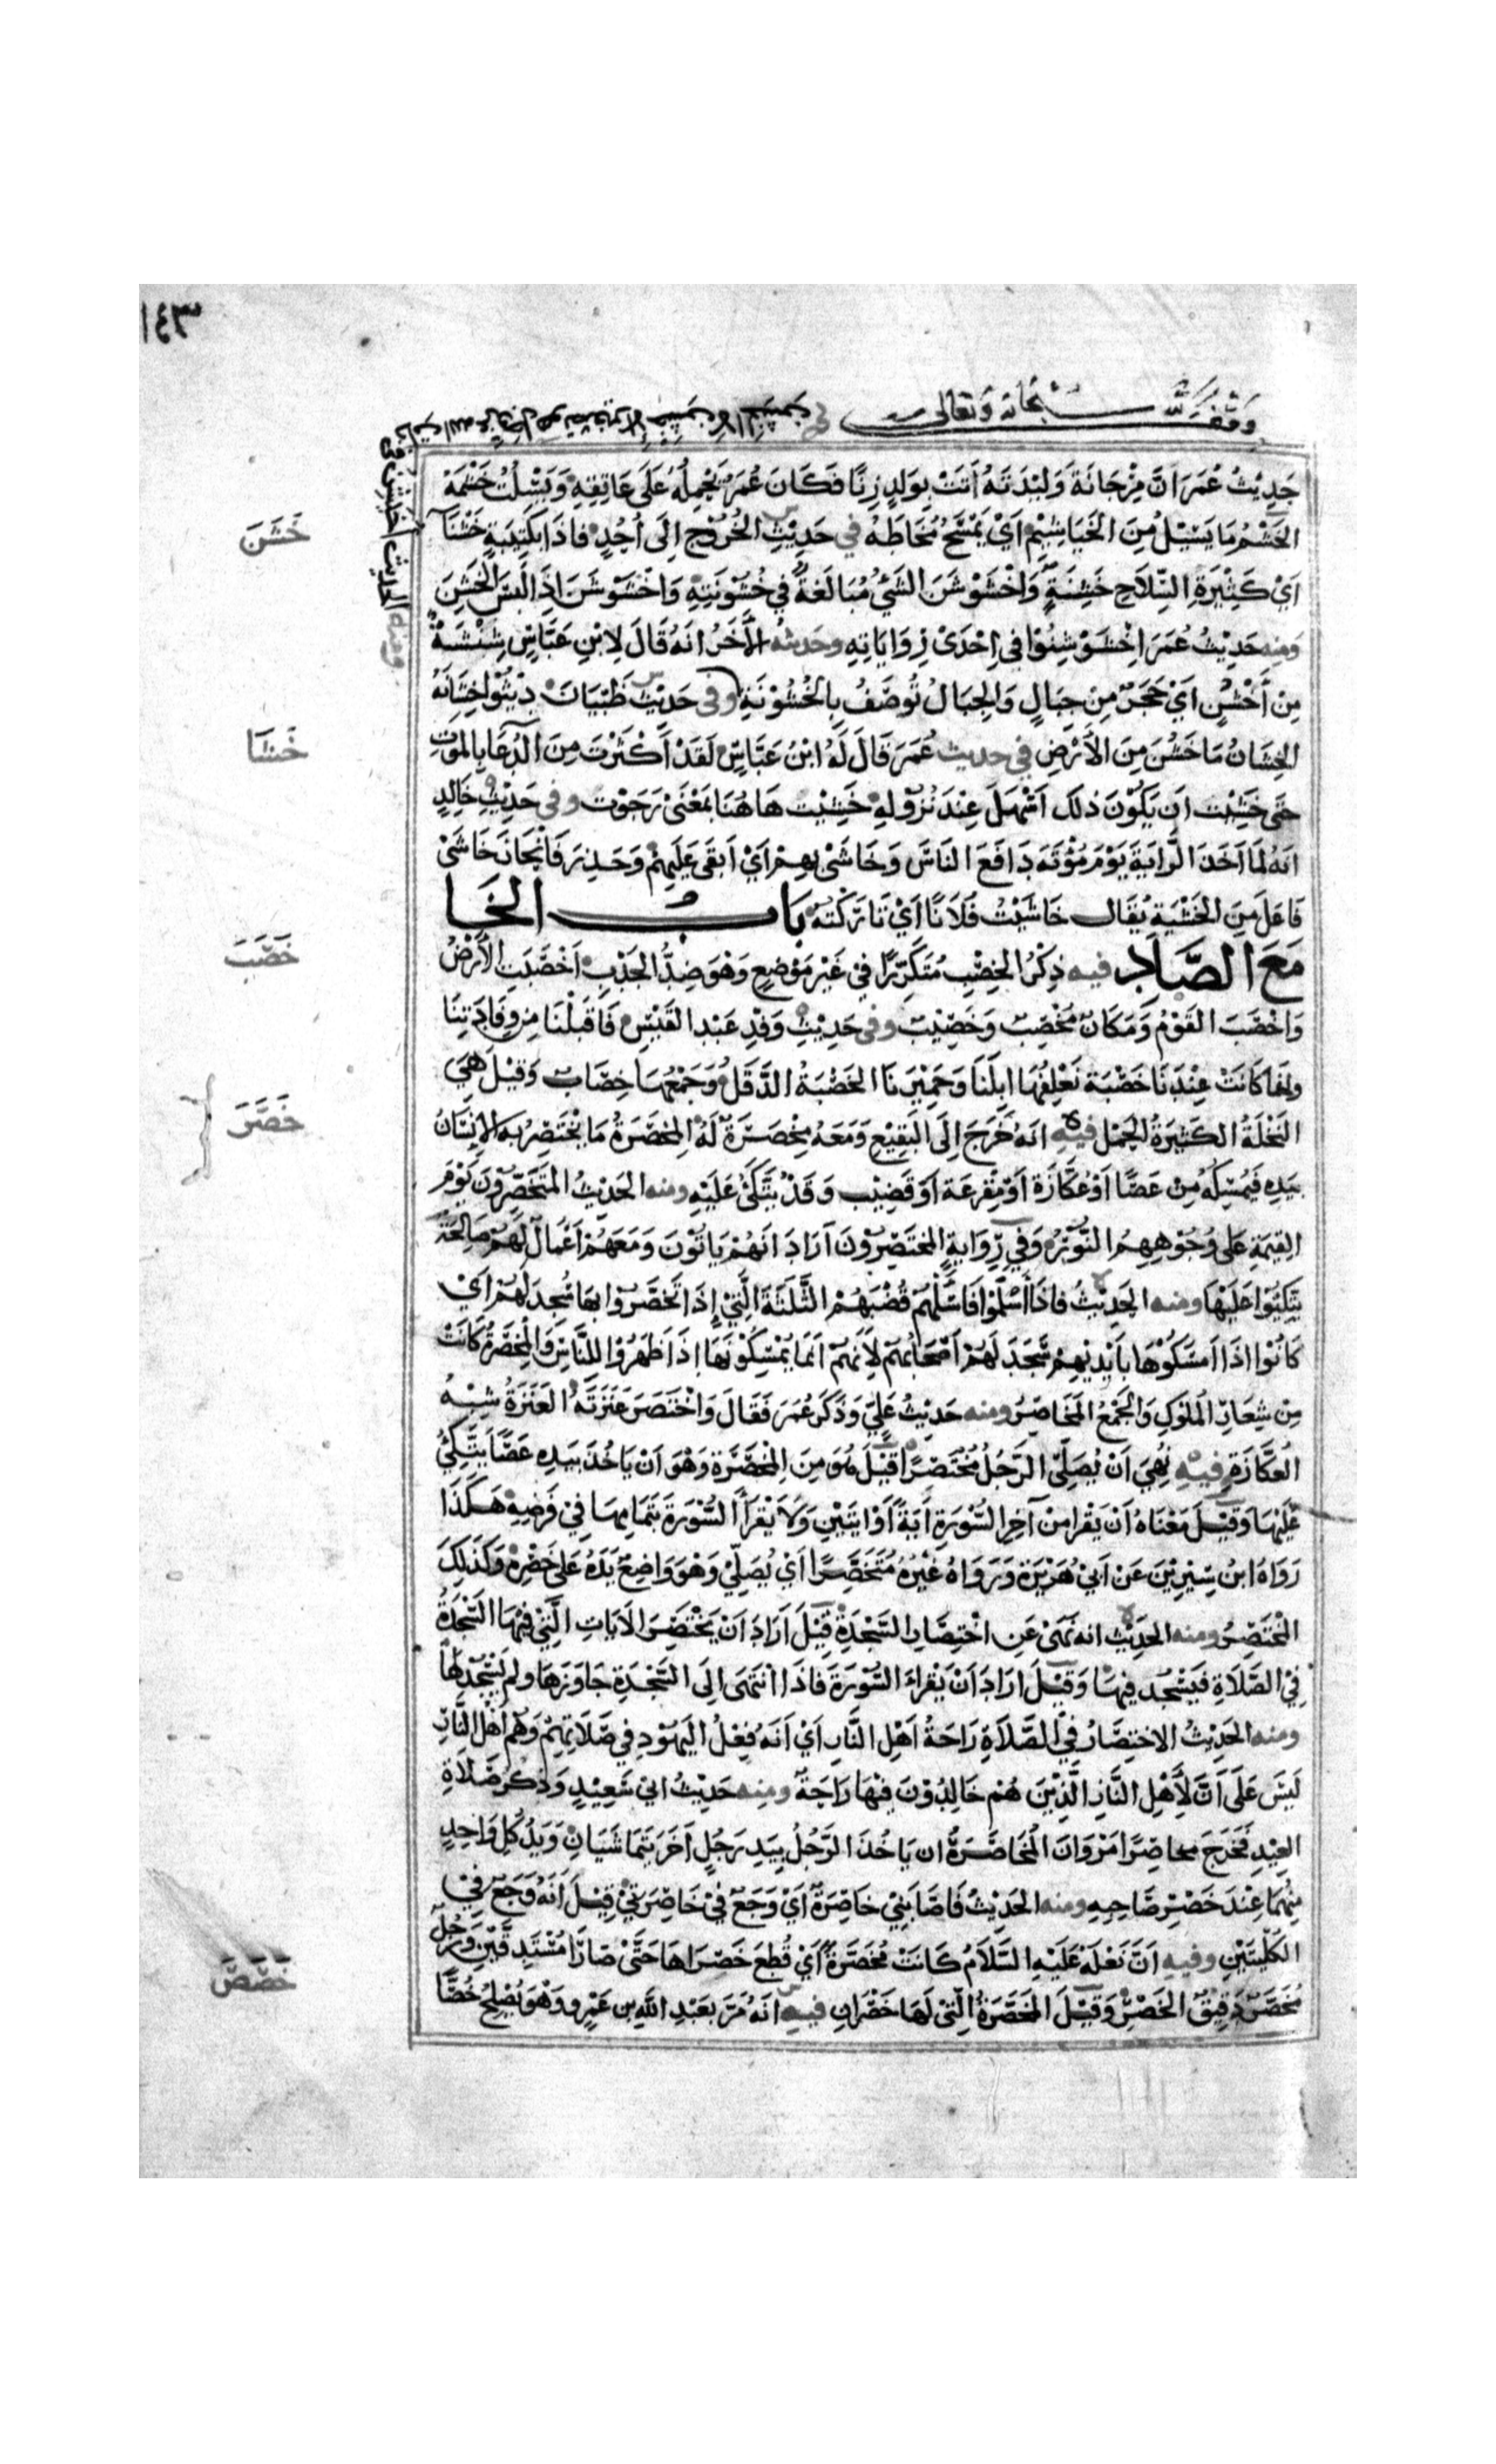 ١٤٣
وقف لله سبحانه وتعالى
حَدِيْثُ عُمَرَ اَنَّ مِرْجَانَةَ وَلِيْدَتَهُ اَتَتْ بِوَلَدِ زِنًا فَكَانَ عُمَرُ يَحْمِلُهُ عَلَى عَاتِقِهِ وَيَسْلُتُ خَشَمَهُ
الخَشْمُ مَا يَسِيْلُ مِنَ الخَيَاشِيْمِ اَيْ يَمْسَحُ مُخَاطَهُ في حَدِيْثِ الخُرُوْجِ اِلَى اُحُدٍ فاذَا بِكَتِيْبَةٍ خَشْنَآ
خَشَنَ
اَيْ كَثِيْرَةِ السِّلَاحِ خَشِنَةٍ وَاخْشَوْشَنَ الشَّيْ مُبَالَغَةٌ في خُشُوْنَتِهِ وَاخْشَوْشَنَ اِذَا لَبِسَ الخَشِنَ
ومنه حَدِيْثُ عُمَرَ اِخْشَوْشِنُوْا في اِحْدَى رِوَايَاتِهِ وحَديثه الآخَرُ انَهُ قَالَ لِابْنِ عَبَّاسٍ شِنْشَنَةٌ
مِنْ اَخْشَنَ اَيْ حَجَرٌ مِنْ جَبَالٍ وَالِجبَالُ تُوصَفُ بِالخُشُوْنَةِ وفى حَدِيْثِ ظَبْيَانَ ذِنْبُوْا خِشَانَهُ
الخِشَانُ مَا خَشُنَ مِنَ الاَرْضِ في حديث عُمَرَ قَالَ لَهُ ابْنُ عَبَّاسٍ لَقَدْ اَكْثَرْتَ مِنَ الدُعَا بِالمَوْتِ
خَشَا
حَتَى خَشِيْت اَن يَكُوْنَ ذٰلكَ اَسْهَلَ عِنْدَ نُزُوْلِهِ خَشِيْت هَاهُنَا بمَعْنَى رَجَوْت وفى حَدِيْثِ خَالِدٍ
انَهُ لمَا اَخَذَ الرَّايَةَ يَوْمَ مُؤْتَهَ دَافَعَ النَاسَ وَخَاشَى بِهِمْ اَيْ اَبقَى عَلَيهِمْ وَحَذِرَ فَانْحَازَ خَاشَى
فَاعَلَ مِنَ الخَشْيَةِ يُقَال خَاشَيْتُ فُلَانًا اَيْ تَارَكْتُهُ بَابُ الخَا
مَعَ الصَّادِ فيه ذِكْرُ الخِصْبِ مُتَكَرِّرًا في غَيْرِ مَوْضِعٍ وَهْوَ ضِدُّ الجَدْبِ اَخْصَبَتِ الاَرْضُ
خَصَبَ
وَاخْصَبَ القَوْمُ وَمَكَانٌ مُخْصِبٌ وَخَصِيْبٌ وفى حَدِيْثِ وَفْدِ عَبْد القَيْسِ فَاَقْبَلْنَا مِن وِفَادَتِنَا
وانمَا كَانَتْ عِنْدَنَا خَصْبَة نَعْلِفُهَا ابِلَنَا وَحَمِيْرَنَا الخَصْبَةُ الدَّقَلُ وَجَمْعُهَا خِصَابٌ وَقِيْلَ هِيَ
النَخْلَةُ الكَثِيْرَةُ الحَمْل فيه انَهُ خَرَجَ اِلَى البَقِيْعِ وَمَعَهُ مِخْصَرَةٌ لَهُ المِخْصَرَةُ مَا يَخْتَصِرُ بهِ الاِنْسَانُ
خَصَرَ
بيَدِهِ فَيُمْسِكُهُ مِنْ عَصًا اَوْ عُكَّازَة اَوْ مِقْرَعَة اَوْ قَضِيْب وَقَدْ يَتَّكَئُ عَلَيْهِ ومنه الحَدِيْثُ المتَخَصِّرُوْنَ يَوْمَ
القِيمَةِ عَلى وُجُوْهِهِمُ النُوْرُ وَفي رِوَايَةٍ المختَصِرُوْنَ اَرَادَ انَهُمْ يَاتُوْنَ وَمَعَهُمْ اَعْمَالٌ لَهُمْ صَالِحَةٌ
يَتَكِئُوْا عَلَيْهَا ومنه الحَدِيْثُ فاذَا اَسْلَمُوْا فَاسْئَلْهُمْ قُضُبَهُمُ الثَّلَثَةَ الَّتِيْ إِذَا تَخَصَّرُوْا بهَا سُجِدَ لَهُمْ اَيْ
كَانُوْا اذَا اَمسَكُوْهَا بِاَيْدِيْهِمْ سَجَدَ لَهُمْ اَصْحَابُهُمْ لاَنَهُمْ انَمَا يُمْسِكُوْنَهَا اذَا ظَهَرُوْا لِلنَّاسِ وَالمِخْصَرَةُ كَانَتْ
مِنْ شِعَارِ المُلُوْكِ وَالجَمْعُ المَخَاصِرُ ومنه حَدِيْثُ عَلِيٍّ وَذَكَرَ عُمَرَ فَقَالَ وَاخْتَصَرَ عَنَزَتَهُ العَنَزَةُ شِبْهُ
العُكَّازَةِ فيه نُهِيَ اَنْ يُصَلِّيَ الرَّجُلُ مُخْتَصِرًا قِيْلَ هُوَ مِنَ المِخْصَرَةِ وَهْوَ اَنْ يَاخُذَ بيَدِهِ عَصًا يَتَّكِئُ
عَلَيْهَا وَقِيْلَ مَعْنَاهُ اَنْ يَقْرَا مِنْ آخِرِ السُّوْرَةِ اٰيَةً اَوْ ايَتَيْنِ وَلَا يَقْرَأ السُّوْرَةَ بتَمَامِهَا في فَرْضِهِ هَكَذَا
رَوَاهُ ابْن سِيْرِيْنَ عَنْ اَبيْ هُرَيْرَةَ وَرَوَاهُ غَيْرُهُ مُتَخَصِّرًا اَيْ يُصَلِّيْ وَهْوَ وَاضِعٌ يَدَهُ عَلى خَصْرِهِ وَكَذٰلِكَ
المُخْتَصِرُ ومنه الحَدِيْث انه نَهَىْ عَنِ اخْتِصَارِ السَّجْدَةِ قِيْلَ اَرَادَ اَنْ يَخْتَصِرَ الاٰيَاتِ الَّتِيْ فِيْهَا السَّجْدَةُ
فِي الصَّلَاةِ فَيَسْجُد فِيهَا وَقِيْلَ ارَادَ اَنْ يَقْرَاءَ السُّوْرَةَ فَاذَا انْتَهَى اِلَى السَّجْدَةِ جَاوَزَهَا ولم يَسْجُدْ لَهَا
ومنه الحَدِيْثُ الاخْتِصَارُ في الصَّلَاةِ رَاحَةُ اَهْلِ النَّارِ اَيْ اَنَهُ فِعْلُ اليَهُوْدِ في صَلَاتِهِمْ وَهُم اَهْلُ النَّارِ
لَيْسَ عَلَى اَنَّ لاَهْلِ النَّارِ الَّذِيْنَ هُمْ خَالِدُوْنَ فِيْهَا رَاحَةٌ ومنه حَدِيْثُ ابيْ سَعِيْدٍ وَذَكَرَ صَلَاةَ
العِيْدِ فَخَرَجَ مخاصِرًا مَرْوَانَ المُخَاصَرَةُ ان يَاخُذَ الرَّجُلُ بِيَدِ رَجُلٍ اٰخَرَ يَتَمَاشَيَانِ وَيَدُ كُلِ وَاحِدٍ
مِنْهُمَا عِنْدَ خَصْرِ صَاحِبِهِ ومنه الحَدِيْثُ فَاصَابَنِيْ خَاصِرَةٌ اَيْ وَجَعٌ فيْ خَاصِرَتيْ قِيْلَ اَنَهُ وَجَعٌ في
الكُلْيَتَيْنِ وفيه اَنَّ نَعْلَهُ عَلَيْهِ السَّلَامُ كَانَتْ مُخَصَّرَةً اَيْ قُطِعَ خَصْرَاهَا حَتَّى صَارَا مُسْتَدِقَّيْنِ وَرَجُلٌ
مُخَصَّرٌ دَقِيْقُ الخَصْرِ وَقِيْلَ المُخَصَّرَةُ الَّتِيْ لَهَا خَصْرَانِ فيه انَهُ مَرَّ بعَبْدِ اللهِ بن عَمْرٍو وَهْوَ يُصْلِحُ خُصًّا
خَصَصَ